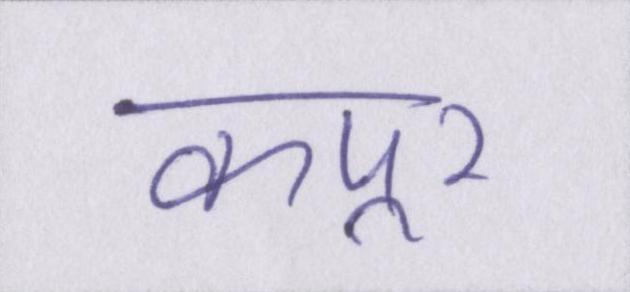 कपूर